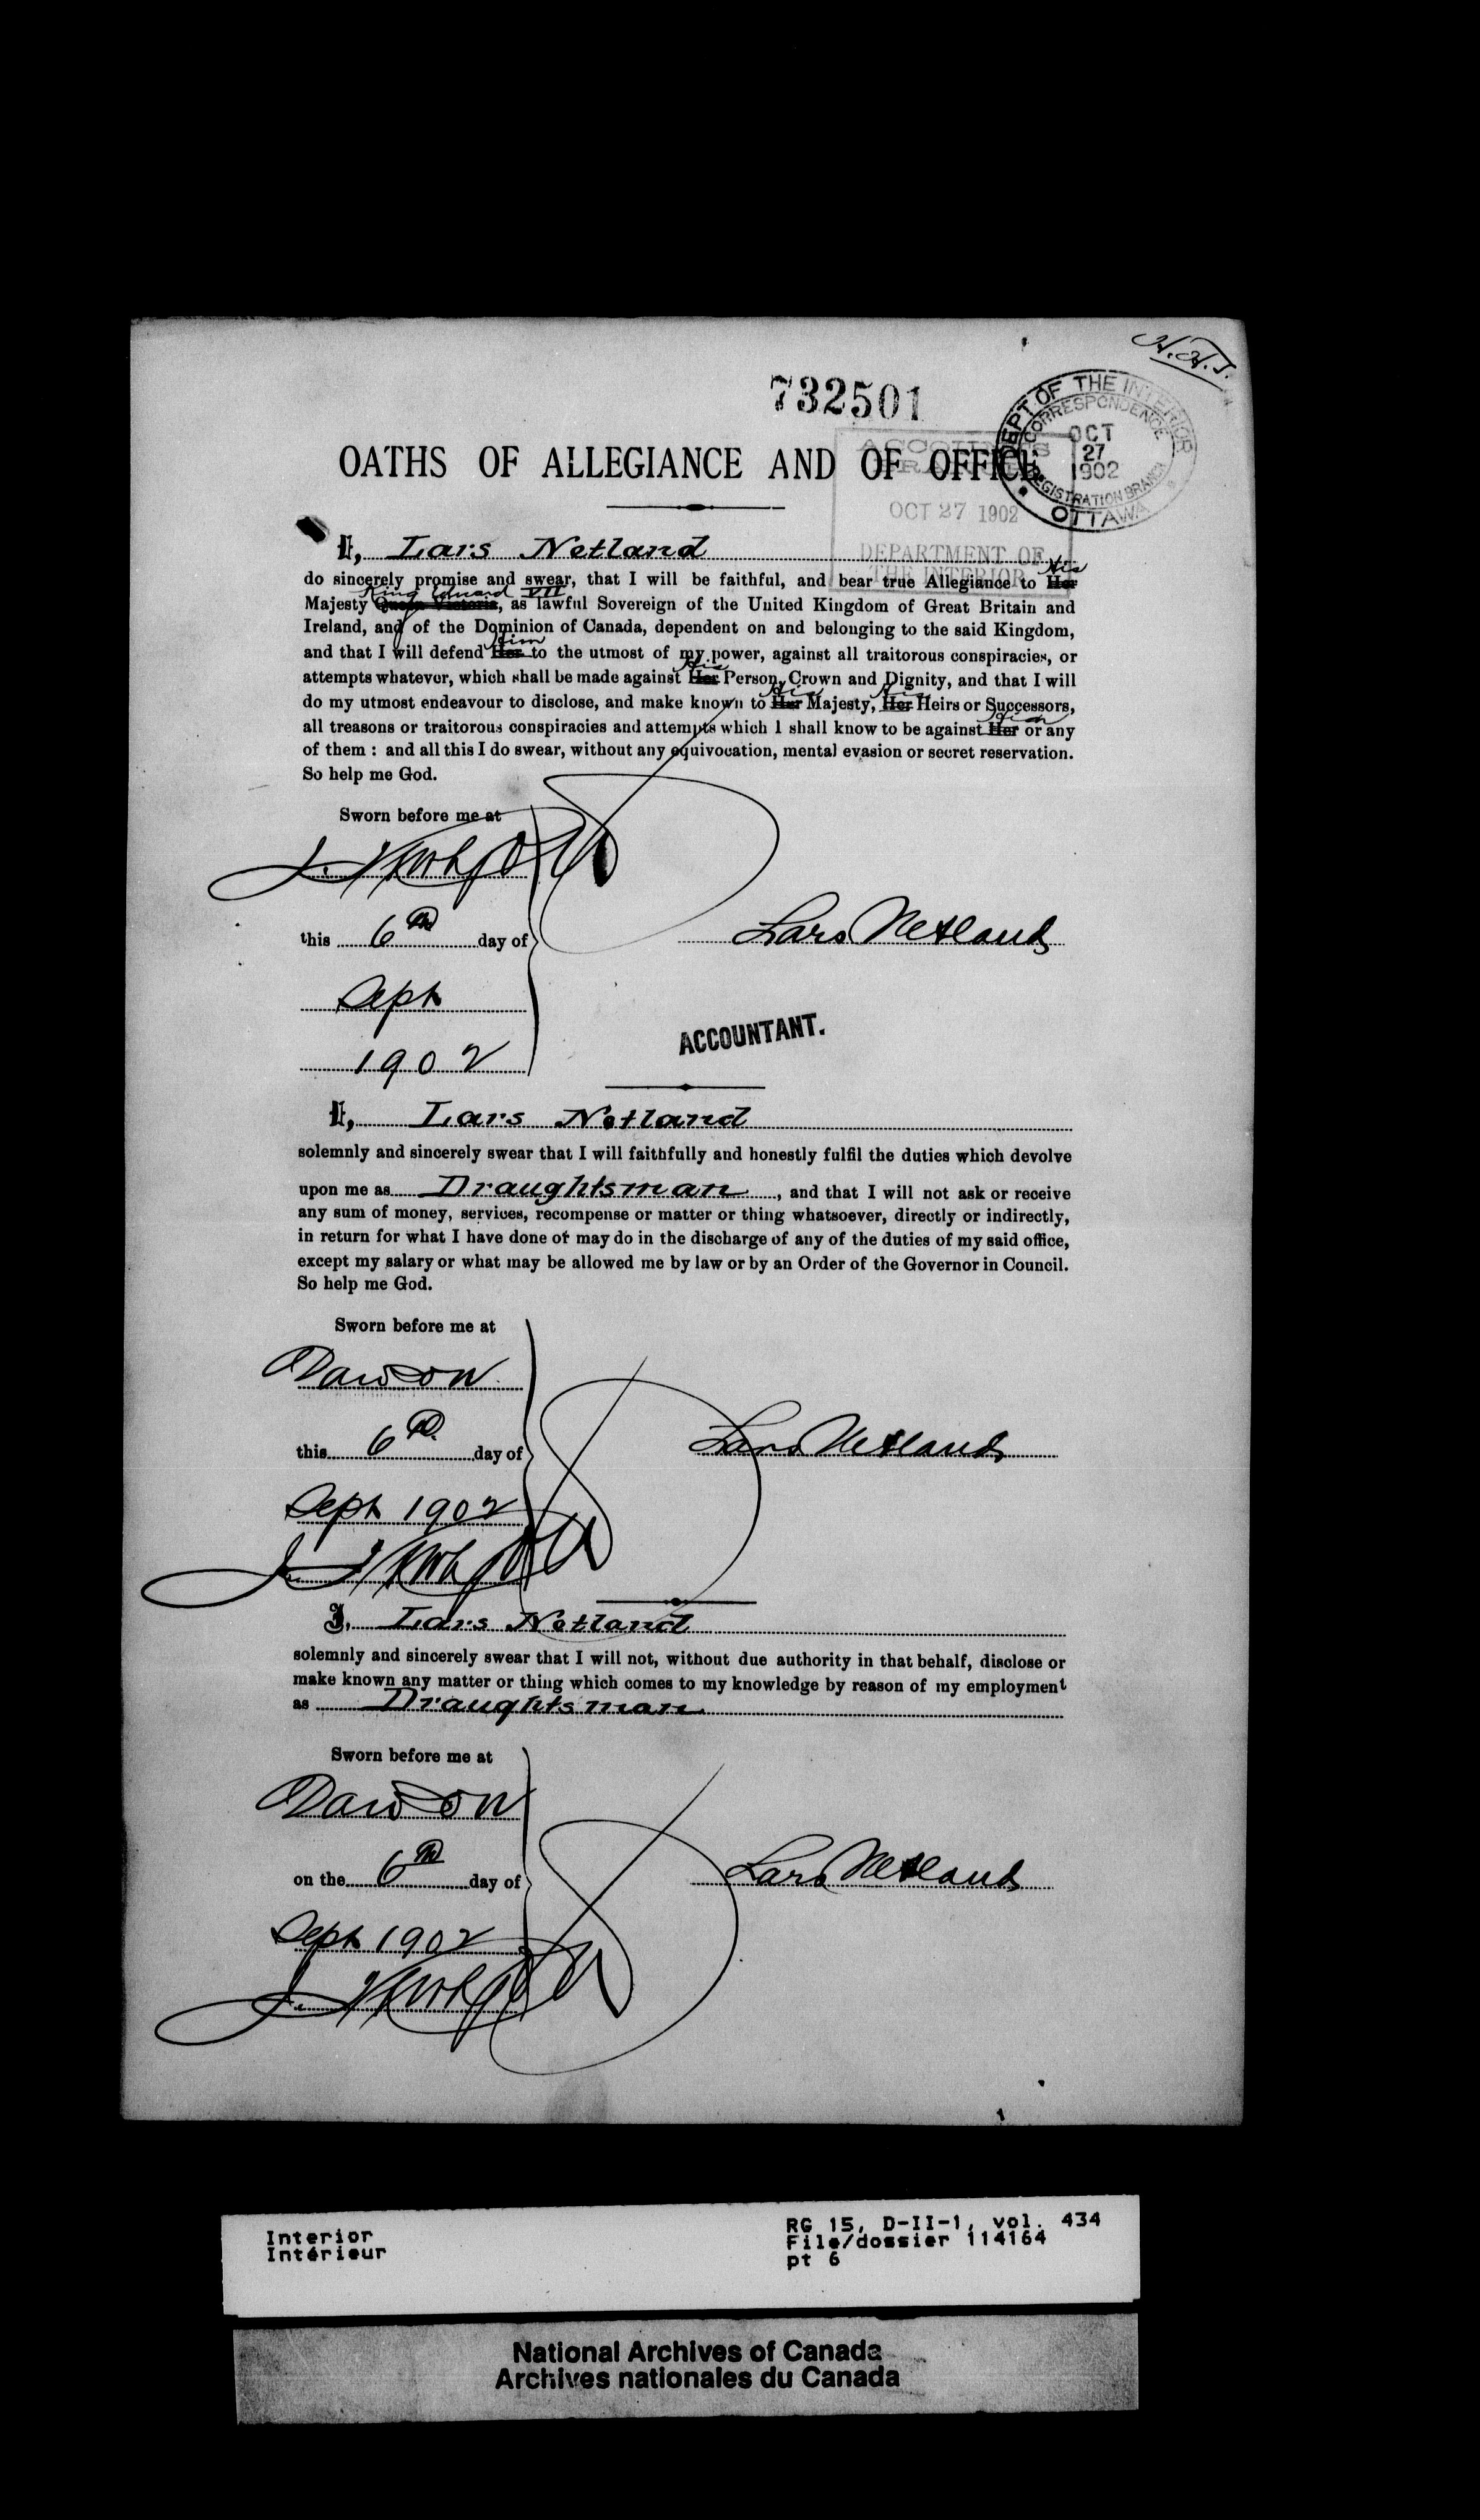 H.H.T.
732501
DEPT OF THE INTERIOR
CORRESPONDENCE
OCT
27
1902
REGISTRATION BRANCH
OTTAWA
OATHS OF ALLEGIANCE AND OF OFFICE
ACCOUNTS
BRANCH
OCT 27 1902
DEPARTMENT OF
THE INTERIOR
I, Lars Netland
His
do sincerely promise and swear, that I will be faithful, and bear true Allegiance to Her
King Edward VII
Majesty Queen Victoria, as lawful Sovereign of the United Kingdom of Great Britain and
Ireland, and of the Dominion of Canada, dependent on and belonging to the said Kingdom,
Him
and that I will defend Her to the utmost of my power, against all traitorous conspiracies, or
His
attempts whatever, which shall be made against Her Person, Crown and Dignity, and that I will
His His
do my utmost endeavour to disclose, and make known to Her Majesty, Her Heirs or Successors,
Him
all treasons or traitorous conspiracies and attempts which I shall know to be against Her or any
of them : and all this I do swear, without any equivocation, mental evasion or secret reservation.
So help me God.
Sworn before me at
this 6th day of
Lars Netland
Sept
1902
ACCOUNTANT.
I, Lars Netland
solemnly and sincerely swear that I will faithfully and honestly fulfil the duties which devolve
upon me as Draughtsman, and that I will not ask or receive
any sum of money, services, recompense or matter or thing whatsoever, directly or indirectly,
in return for what I have done or may do in the discharge of any of the duties of my said office,
except my salary or what may be allowed me by law or by an Order of the Governor in Council.
So help me God.
Sworn before me at
Dawson
this 6th day of
Lars Netland
Sept 1902
I, Lars Netland
solemnly and sincerely swear that I will not, without due authority in that behalf, disclose or
make known any matter or thing which comes to my knowledge by reason of my employment
as Draughtsman
Sworn before me at
Dawson
on the 6th day of
Lars Netland
Sept 1902
Interior
Intérieur
RG 15, D-II-1, vol. 434
File/dossier 114164
pt 6
National Archives of Canada
Archives nationales du Canada